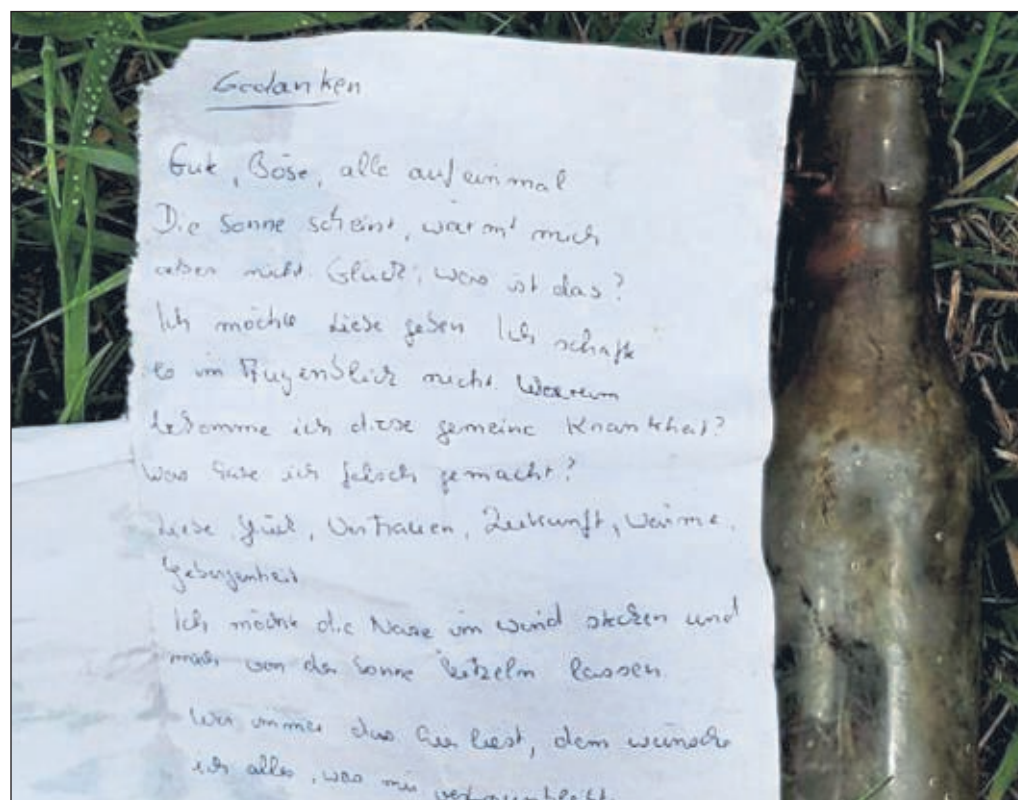 Gedanken
Gute, Böse, alle auf einmal
Die Sonne scheint, wärmt mich
aber nicht. Glück, was ist das?
Ich möchte Liebe geben Ich schaffe
es im Augenblick nicht. Warum
bekomme ich diese gemeine Krankheit?
Was habe ich falsch gemacht?
Liebe, Glück, Vertrauen, Zukunft, Wärme,
Geborgenheit
Ich möchte die Nase im Wind stecken und
mich von der Sonne kitzeln lassen
Wer immer das hier liest, dem wünsche
ich alles, was mir